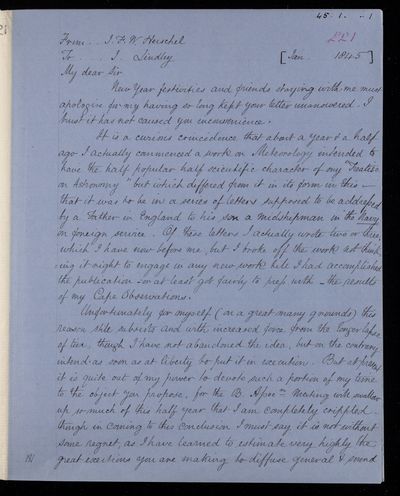 45 · 1 · - 1
221
From . . J. F. W. Herschel
To . . . J. Lindley [Jan 1845]
My dear Sir
New Year festivities and friends staying with me must
apologise for my having so long kept your letter unanswered - I
trust it has not caused you inconvenience.
It is a curious coincidence that about a year & a half
ago I actually commenced a work on Meteorology intended to
have the half popular half scientific character of my "Treatise
on Astronomy" but which differed from it in its form in this -
that it was to be in a series of letters supposed to be addressed
by a Father in England to his son a midshipman in the Navy
on foreign service. Of these letters I actually wrote two or three,
which I have now before me, but I broke off the work not think-
-ing it right to engage in any new work till I had accomplished
the publication - or at least got fairly to press with - the results
of my Cape Observations.
Unfortunately for myself (on a great many grounds) this
reason still subsists and with increased force from the longer lapse
of time, though I have not abandoned the idea, but on the contrary
intend as soon as at liberty to put it in execution. But at present
it is quite out of my power to devote such a portion of my time
to the object you propose, for the B. Meeting will swallow
up so much of this half year that I am completely crippled -
though in coming to this conclusion I must say it is not without
some regret, as I have learned to estimate very highly the
great exertions you are making to diffuse general & sound